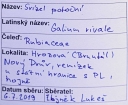 Název: Svízel potoční
Latinský název:
Galium rivale
Čeleď: Rubiaceae
Lokalita: Hvozdná (Bruntál)
Nový Dvůr, remízek
u státní hranice s PL,
hojně
Datum sběru: Sběratel:
6.7.2019 Zbyněk Lukeš